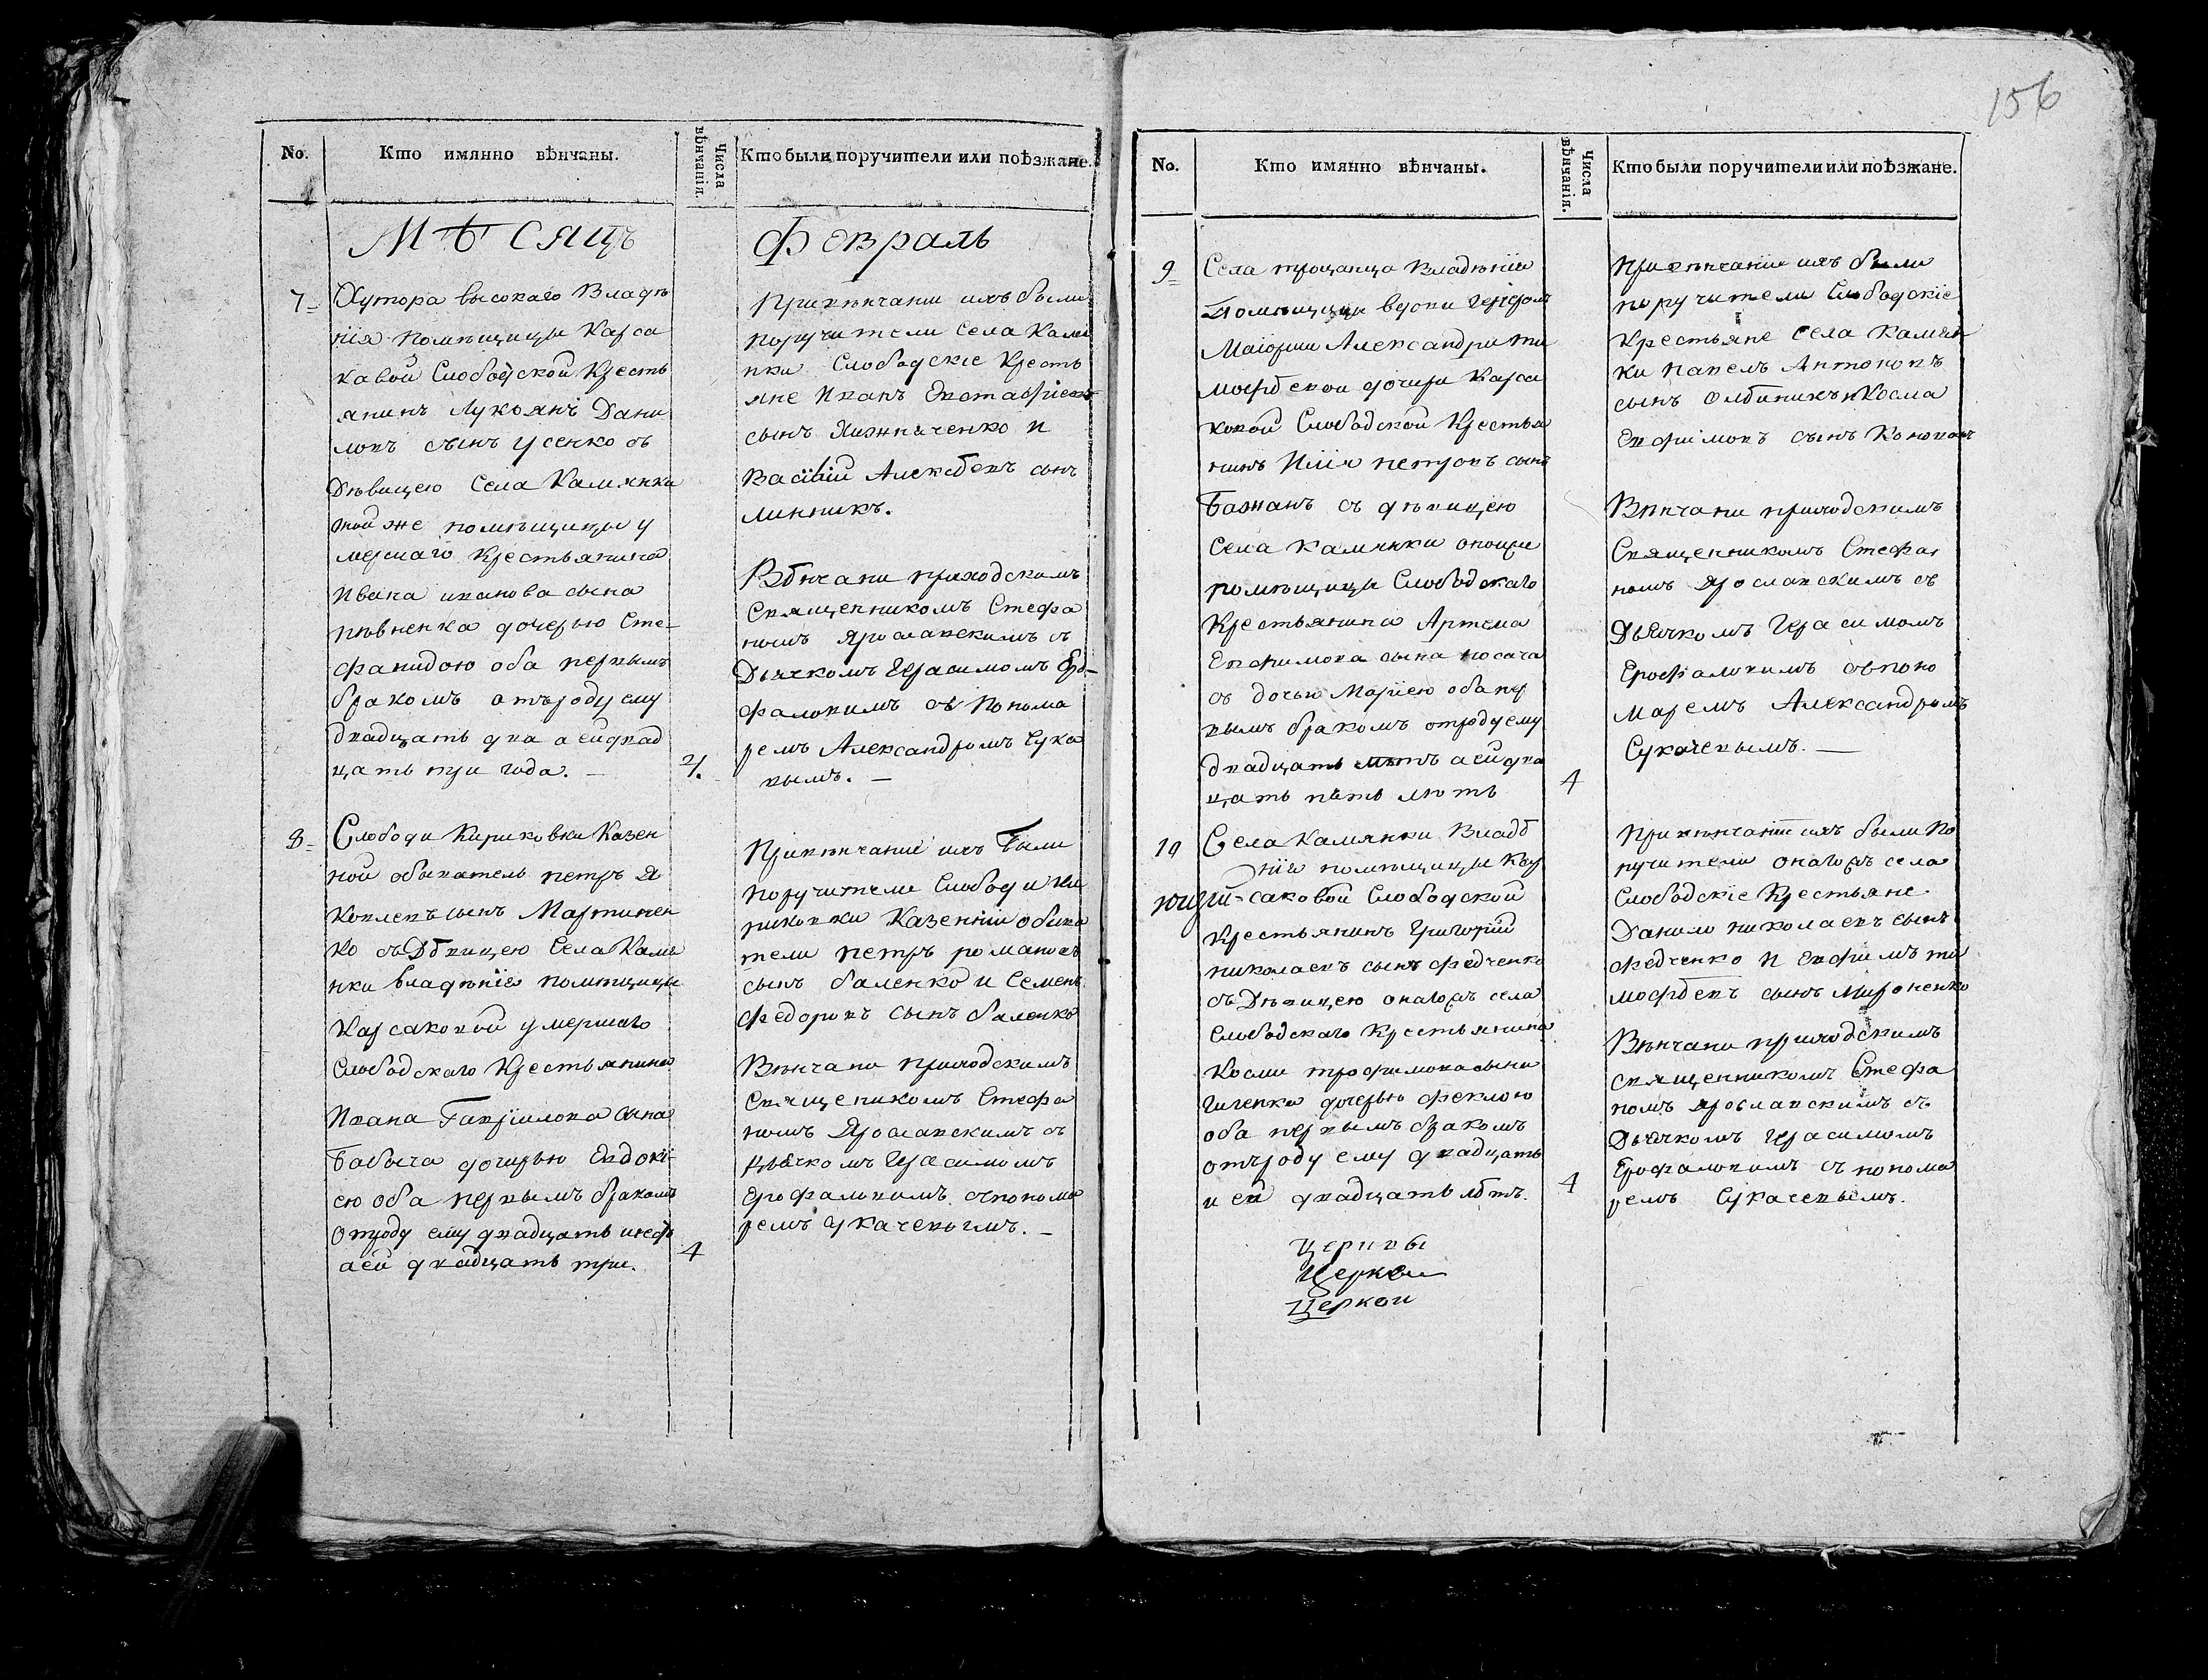 156
No.
Кто имянно вѣнчаны.
Числа вѣнчанія.
Кто были поручители или поѣзжане.
Мѣсяцъ
Февраль
7
Хутора высокаго Владѣ
нія помѣщицы Карса
кавой Слободской Кресть
янинъ Лукоянъ Дани
ловъ сынъ усенко съ
Дѣвицею Села Камянки
той же помѣщицы у
мершаго Крестьянина
Ивана иванова сына
пѣвненка дочерью Сте-
фанидою оба первымъ
бракомъ отъроду ему
двадцать два а ей двад
цать три года.
2.
Привѣнчании ихъ были
поручители села Камя
нки Слободскіе Кресть
яне Иванъ Евстафіевъ
сынъ и
Василій Алексѣевъ сынъ
линникъ.
Вѣнчани приходскимъ
Священникомъ Стефа
номъ Ярославскимъ съ
Дьячкомъ Герасимомъ Еро-
фаловимъ съ Понома
ремъ Александромъ Сука
вымъ.
8
Слободи Кириковки Казен
ной обыватель петръ Я
ковлевъ сынъ Мартинен
ко съ Дѣвицею Села Камя
нки владѣнія помѣщицы
Карсаковой умершаго
Слободскаго Крестьянина
Ивана Гаврилова сына
Бабыча дочерью Евдокі-
ею оба первымъ бракомъ
отроду ему двадцать
а ей двадцать три.
4
Привѣнчаніи ихъ были
поручители Слободи Ки
риковки Казенніи обива
тели петръ романовъ
сынъ баленко и Семенъ
Федоровъ сынъ баленко
Вѣнчани приходскимъ
Священикомъ Стефа
номъ Ярославскимъ съ
дьячкомъ Герасимомъ
Ерофаловимъ съпонома
ремъ Сукачевымъ.
No.
Кто имянно вѣнчаны.
Числа вѣнчанія.
Кто были поручители или поѣзжане.
9
Села тросцанца Владѣнія
Помѣщицы вдови
Маіорши Александри ти
мофѣевой дочери Карса
ковой Слободской Крестья
нинъ Илія петровъ сынъ
Бажанъ съ дѣвицею
Села камянки
помѣщицы Слободскаго
Крестьянина Артема
Евфимова сына носача
съ дочью Маріею оба пер
вымъ бракомъ отроду ему
двадцать а ей два
цать пять лѣтъ
4
Привѣнчаніи ихъ были
поручители Слободскіе
Крестьяне Села камян
ки павелъ Антоновъ
сынъ Олѣйникъ и Косма
Евфимовъ сынъ
Вѣнчани приходскимъ
Священникомъ Стефа
номъ Ярославскимъ съ
Дьячкомъ Герасимомъ
Ерофаловимъ съпоно
маремъ Александромъ
Сукачевымъ.
10
Села Камянки Владѣ
нія помѣщицы Кар
саковой Слободской
Крестьянинъ Григорій
николаевъ сынъ федченко
съ Дѣвицею онагожъ села
Слободскаго Крестьянина
Косми трофимова сына
дочерью феклою
оба первымъ бракомъ
отъроду ему двадцать
и ей двадцать лѣтъ.
4
Привѣнчаніи ихъ были по
ручители онагожъ села
Слободскіе Крестьяне
Данило николаевъ сынъ
федченко и Евфимъ ти
мофѣевъ сынъ Мироненко
Вѣнчани приходскимъ
священникомъ Стефа
номъ Ярославскимъ съ
Дьячкомъ Герасимомъ
Ерофаловимъ съ понома
ремъ Сукачевымъ.
Церквы
Церкви
Церкви